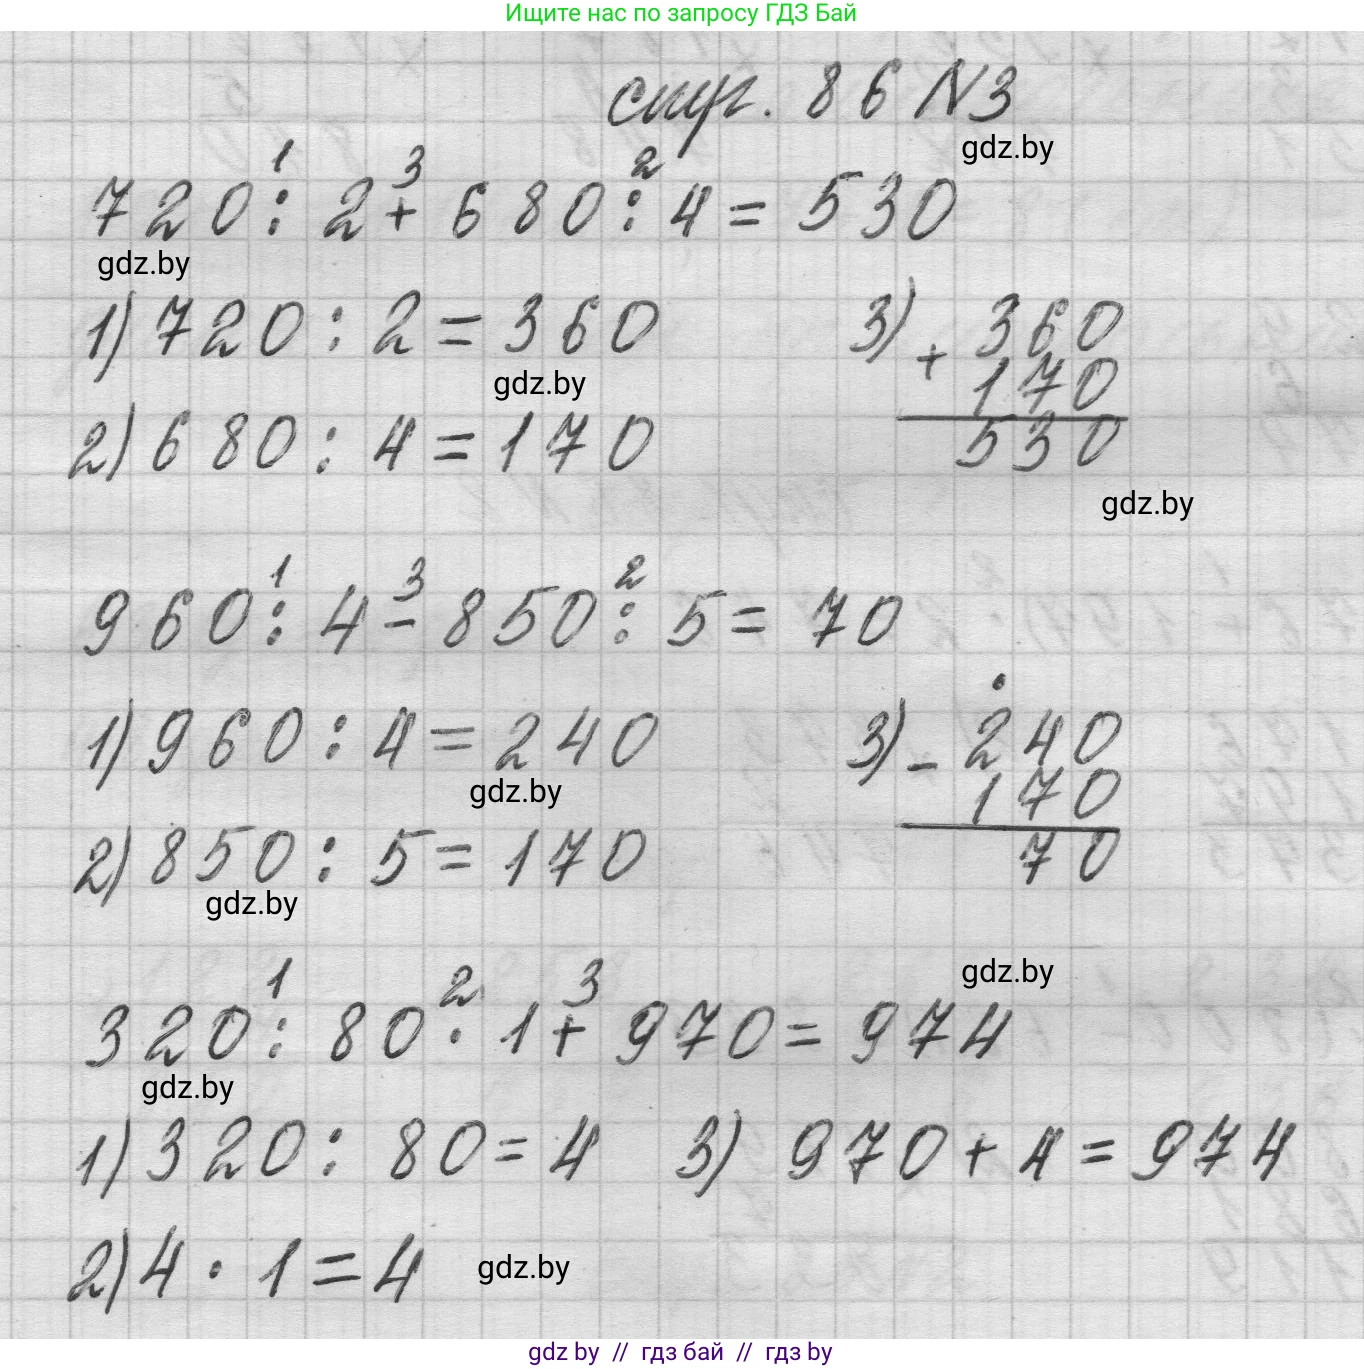 Ищите нас по запросу ГДЗ Бай
стр. 86 N3
gdz.by
1 3 2
720 : 2 + 680 : 4 = 530
gdz.by
1) 720 : 2 = 360
gdz.by
2) 680 : 4 = 170
3) + 360
170
530
gdz.by
1 3 2
960 : 4 - 850 : 5 = 70
1) 960 : 4 = 240
gdz.by
2) 850 : 5 = 170
gdz.by
3) - 240
170
70
gdz.by
1 2 3
320 : 80 · 1 + 970 = 974
gdz.by
1) 320 : 80 = 4
2) 4 · 1 = 4
3) 970 + 4 = 974
gdz.by
gdz by // гдз бай // гдз by